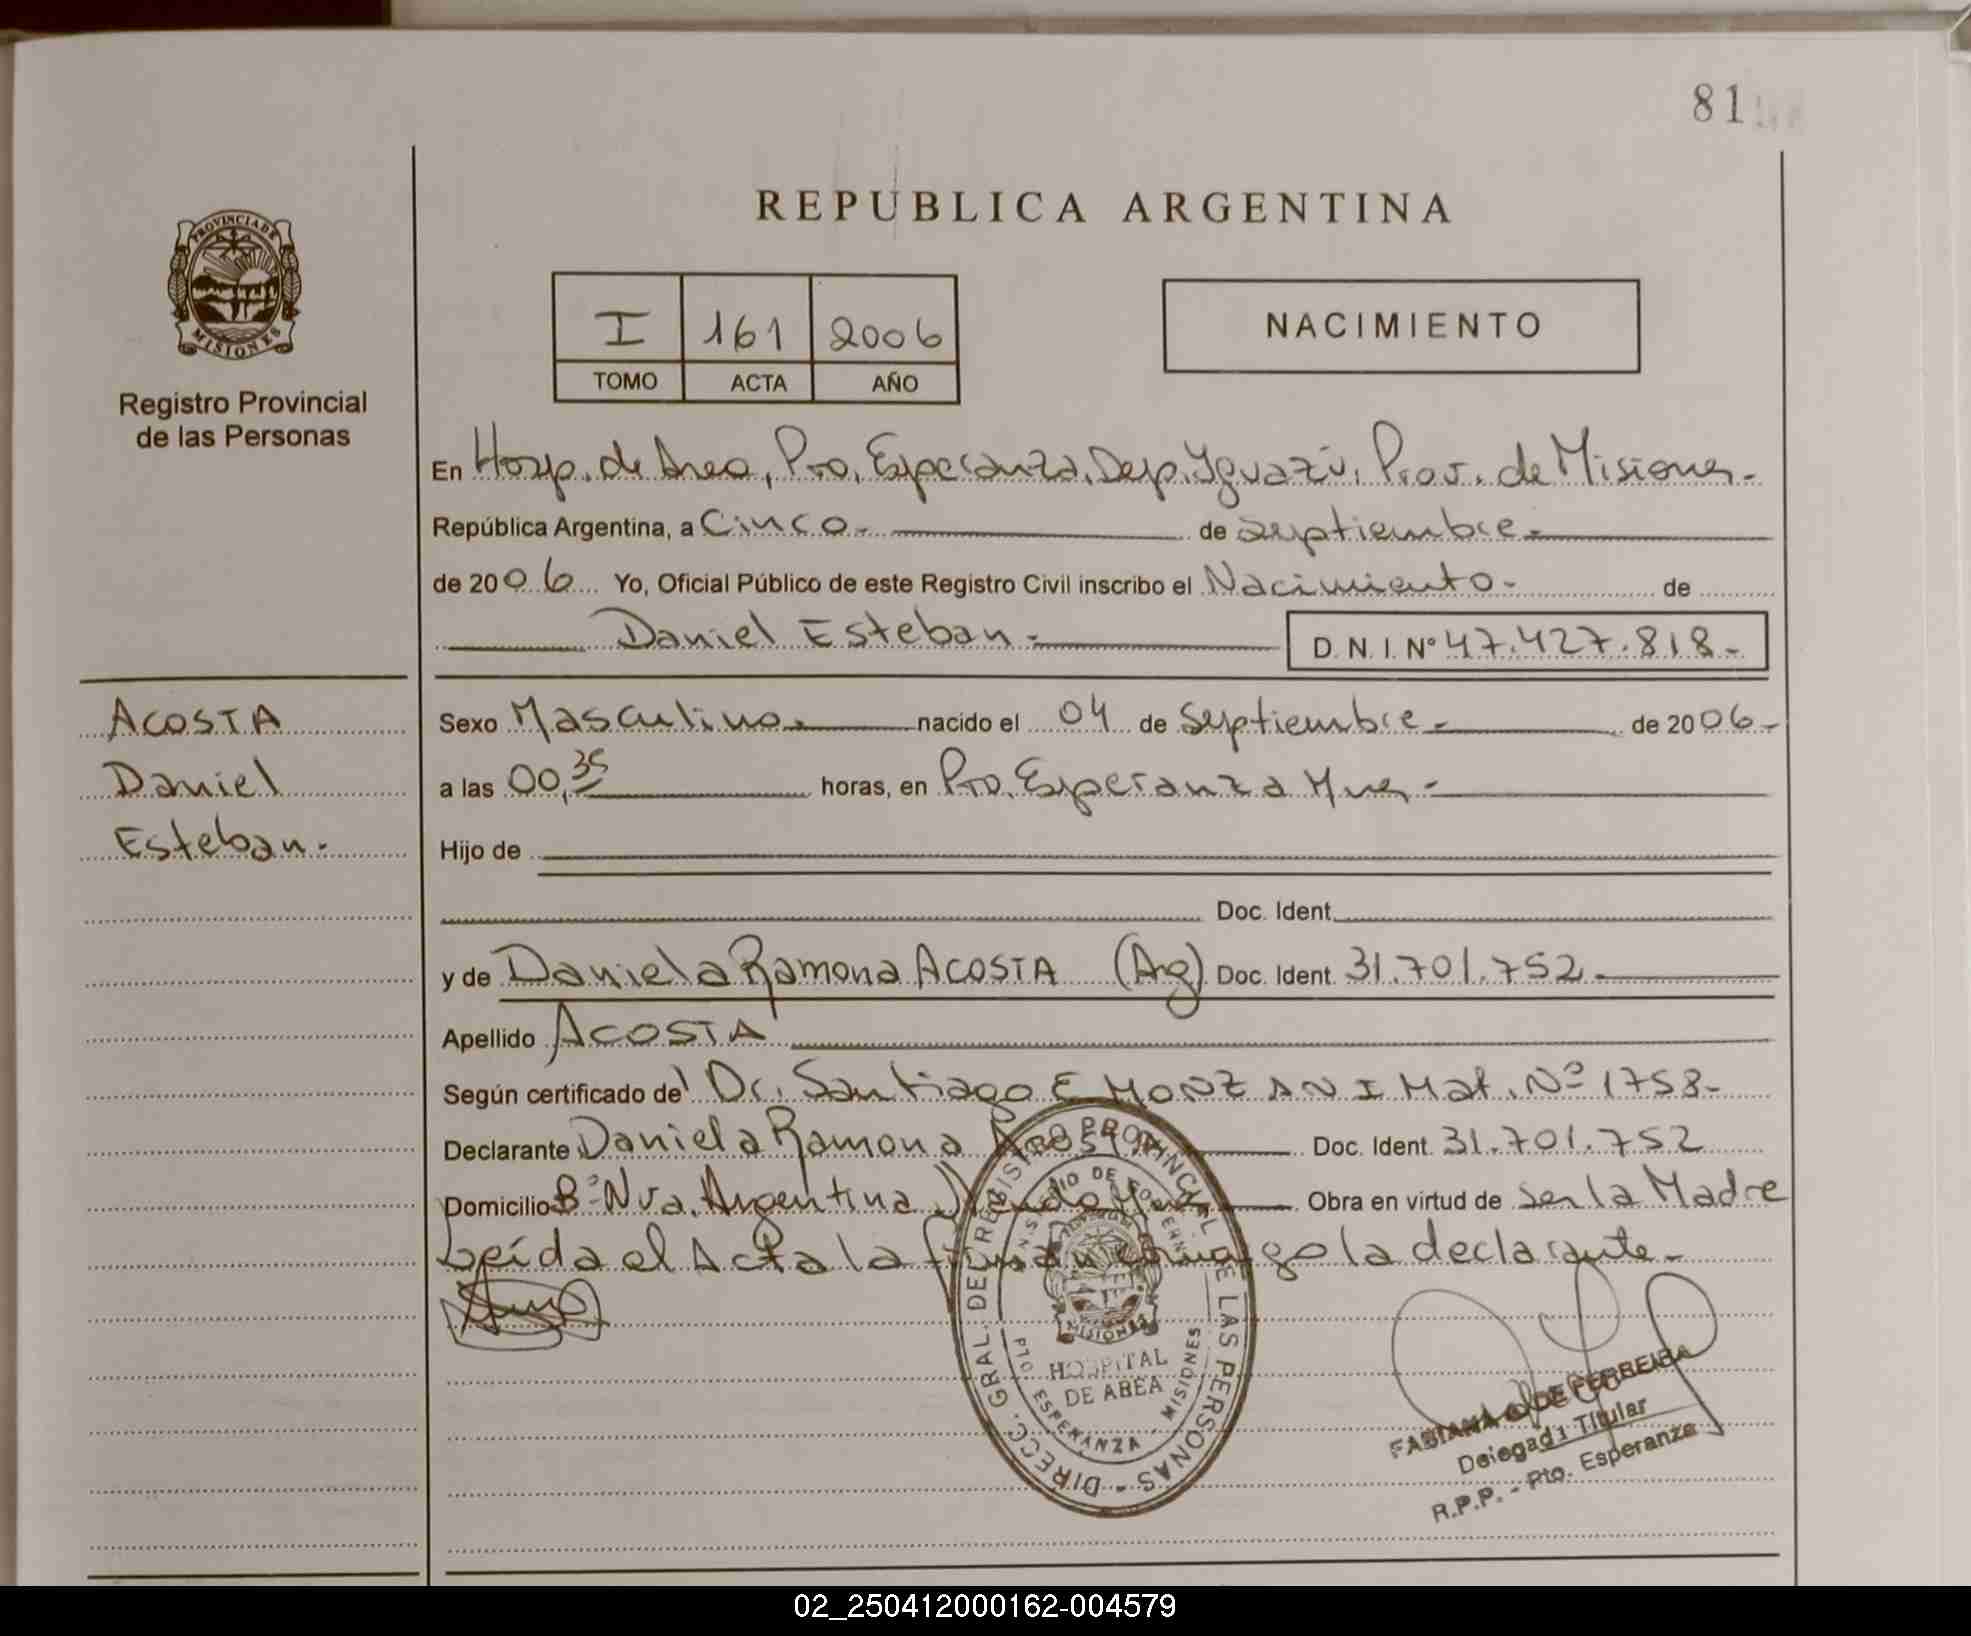 81
PROVINCIA DE
MISIONES
Registro Provincial
de las Personas
REPUBLICA ARGENTINA
I 161 2006
TOMO ACTA AÑO
NACIMIENTO
En Hosp. de Area, Pto. Esperanza, Dep. Iguazú, Prov. de Misiones.-
República Argentina, a Cinco.- de Septiembre.-
de 2006 Yo, Oficial Público de este Registro Civil inscribo el Nacimiento.- de
Daniel Esteban.- D.N.I. Nº 47.427.818.-
ACOSTA
Daniel
Esteban.-
Sexo Masculino.- nacido el 04 de Septiembre.- de 2006.-
a las 00,35 horas, en Pto. Esperanza Mnes.-
Hijo de
Doc. Ident.
y de Daniela Ramona ACOSTA (Arg) Doc. Ident. 31.701.752.-
Apellido ACOSTA
Según certificado de Dr. Santiago E MONZANI Mat. Nº 1758.-
Declarante Daniela Ramona Acosta Doc. Ident. 31.701.752
Domicilio Bº Nva. Argentina Obra en virtud de Ser la Madre
Leída el Acta la firman conmigo la declarante.-
DIRECC. GRAL. DEL REGISTRO PROVINCIAL DE LAS PERSONAS -
MINISTERIO DE GOBIERNO
MISIONES
HOSPITAL
DE AREA
PTO ESPERANZA - MISIONES
FABIANA DE FERREIRA
Delegada Titular
R.P.P. - Pto. Esperanza
02_250412000162-004579